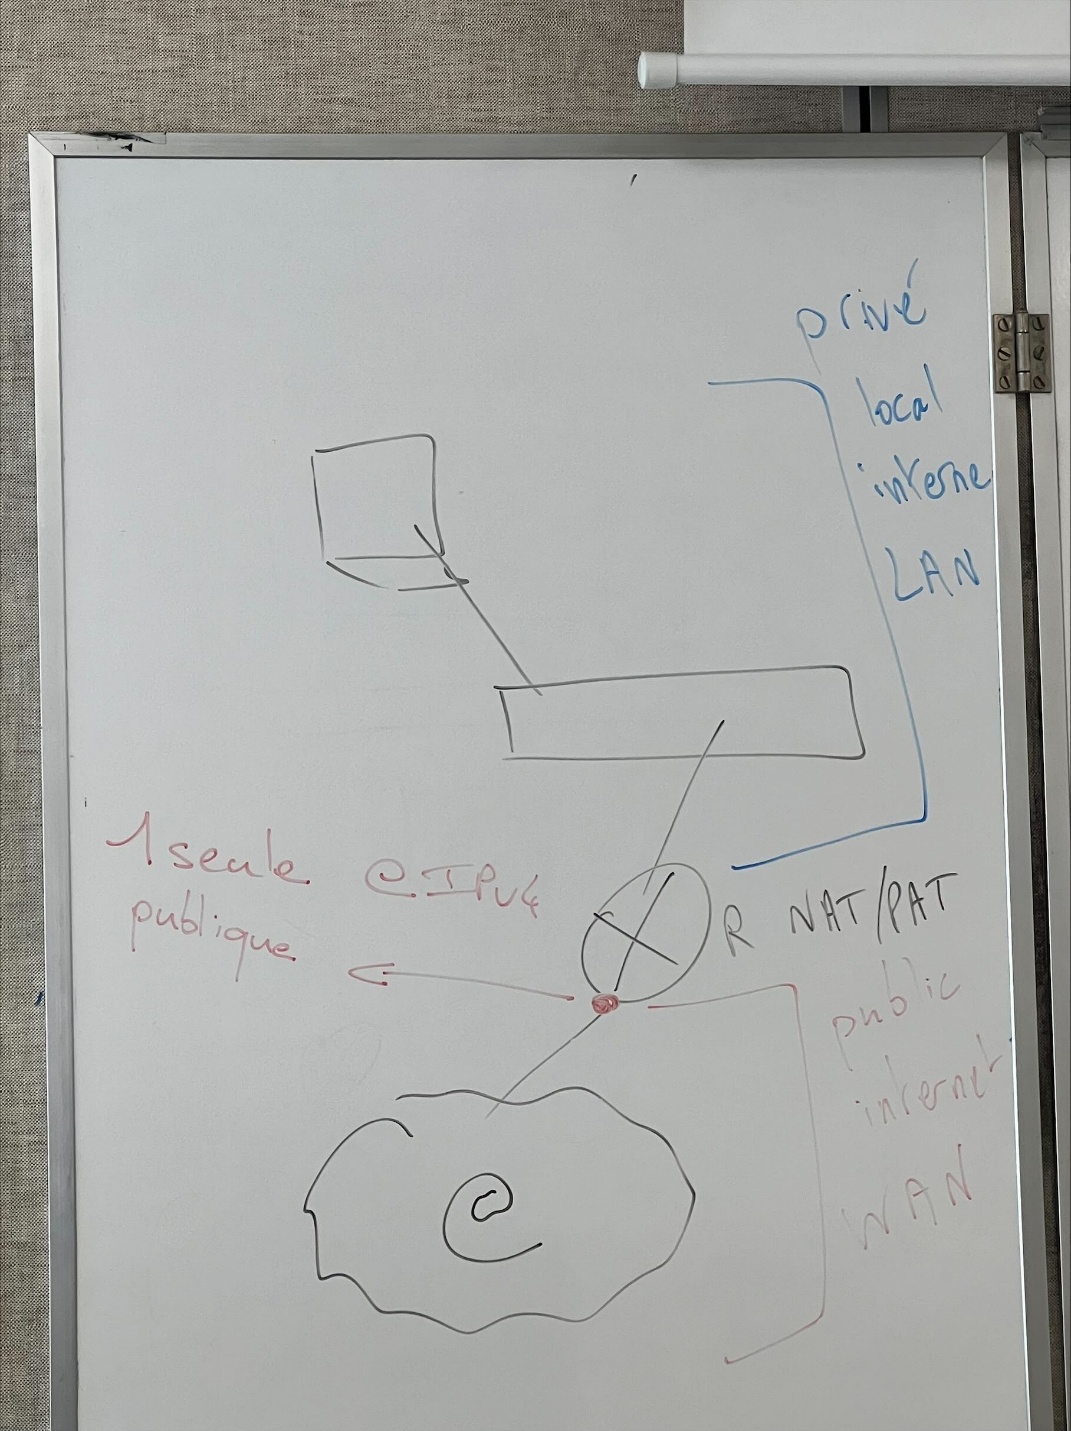 privé
local
interne
LAN
1 seule @IPv4
publique
R NAT/PAT
public
internet
WAN
@